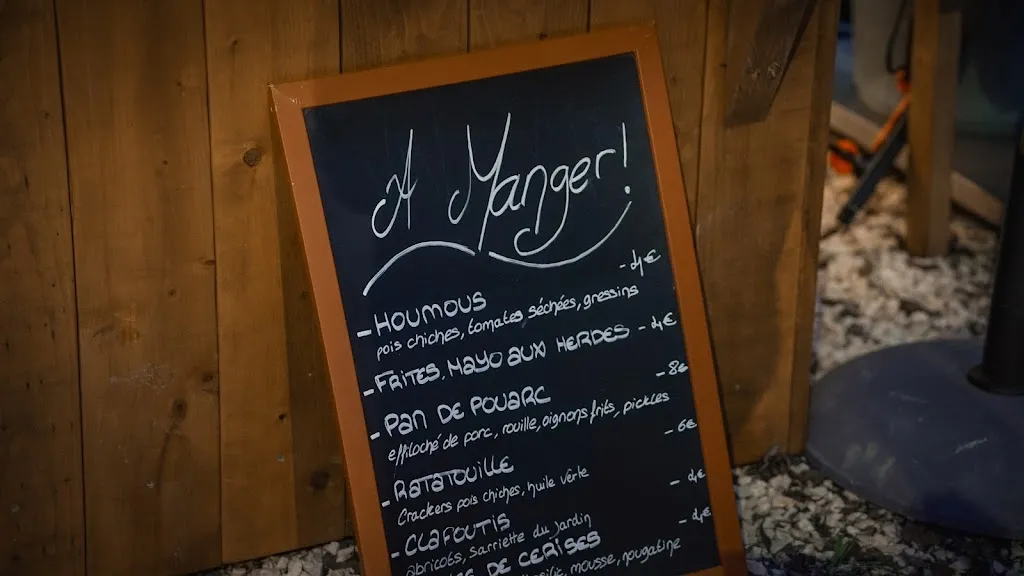 A Manger!
- HOUMOUS - 4€
pois chiches, tomates séchées, gressins
- FRITES, MAYO AUX HERBES - 4€
- PAN DE POUARC - 8€
effiloché de porc, rouille, oignons frits, pickles
- RATATOUILLE - 6€
Crackers pois chiches, huile verte
- CLAFOUTIS - 4€
abricots, sarriette du jardin
DE CERISES - 4€
mousse, nougatine